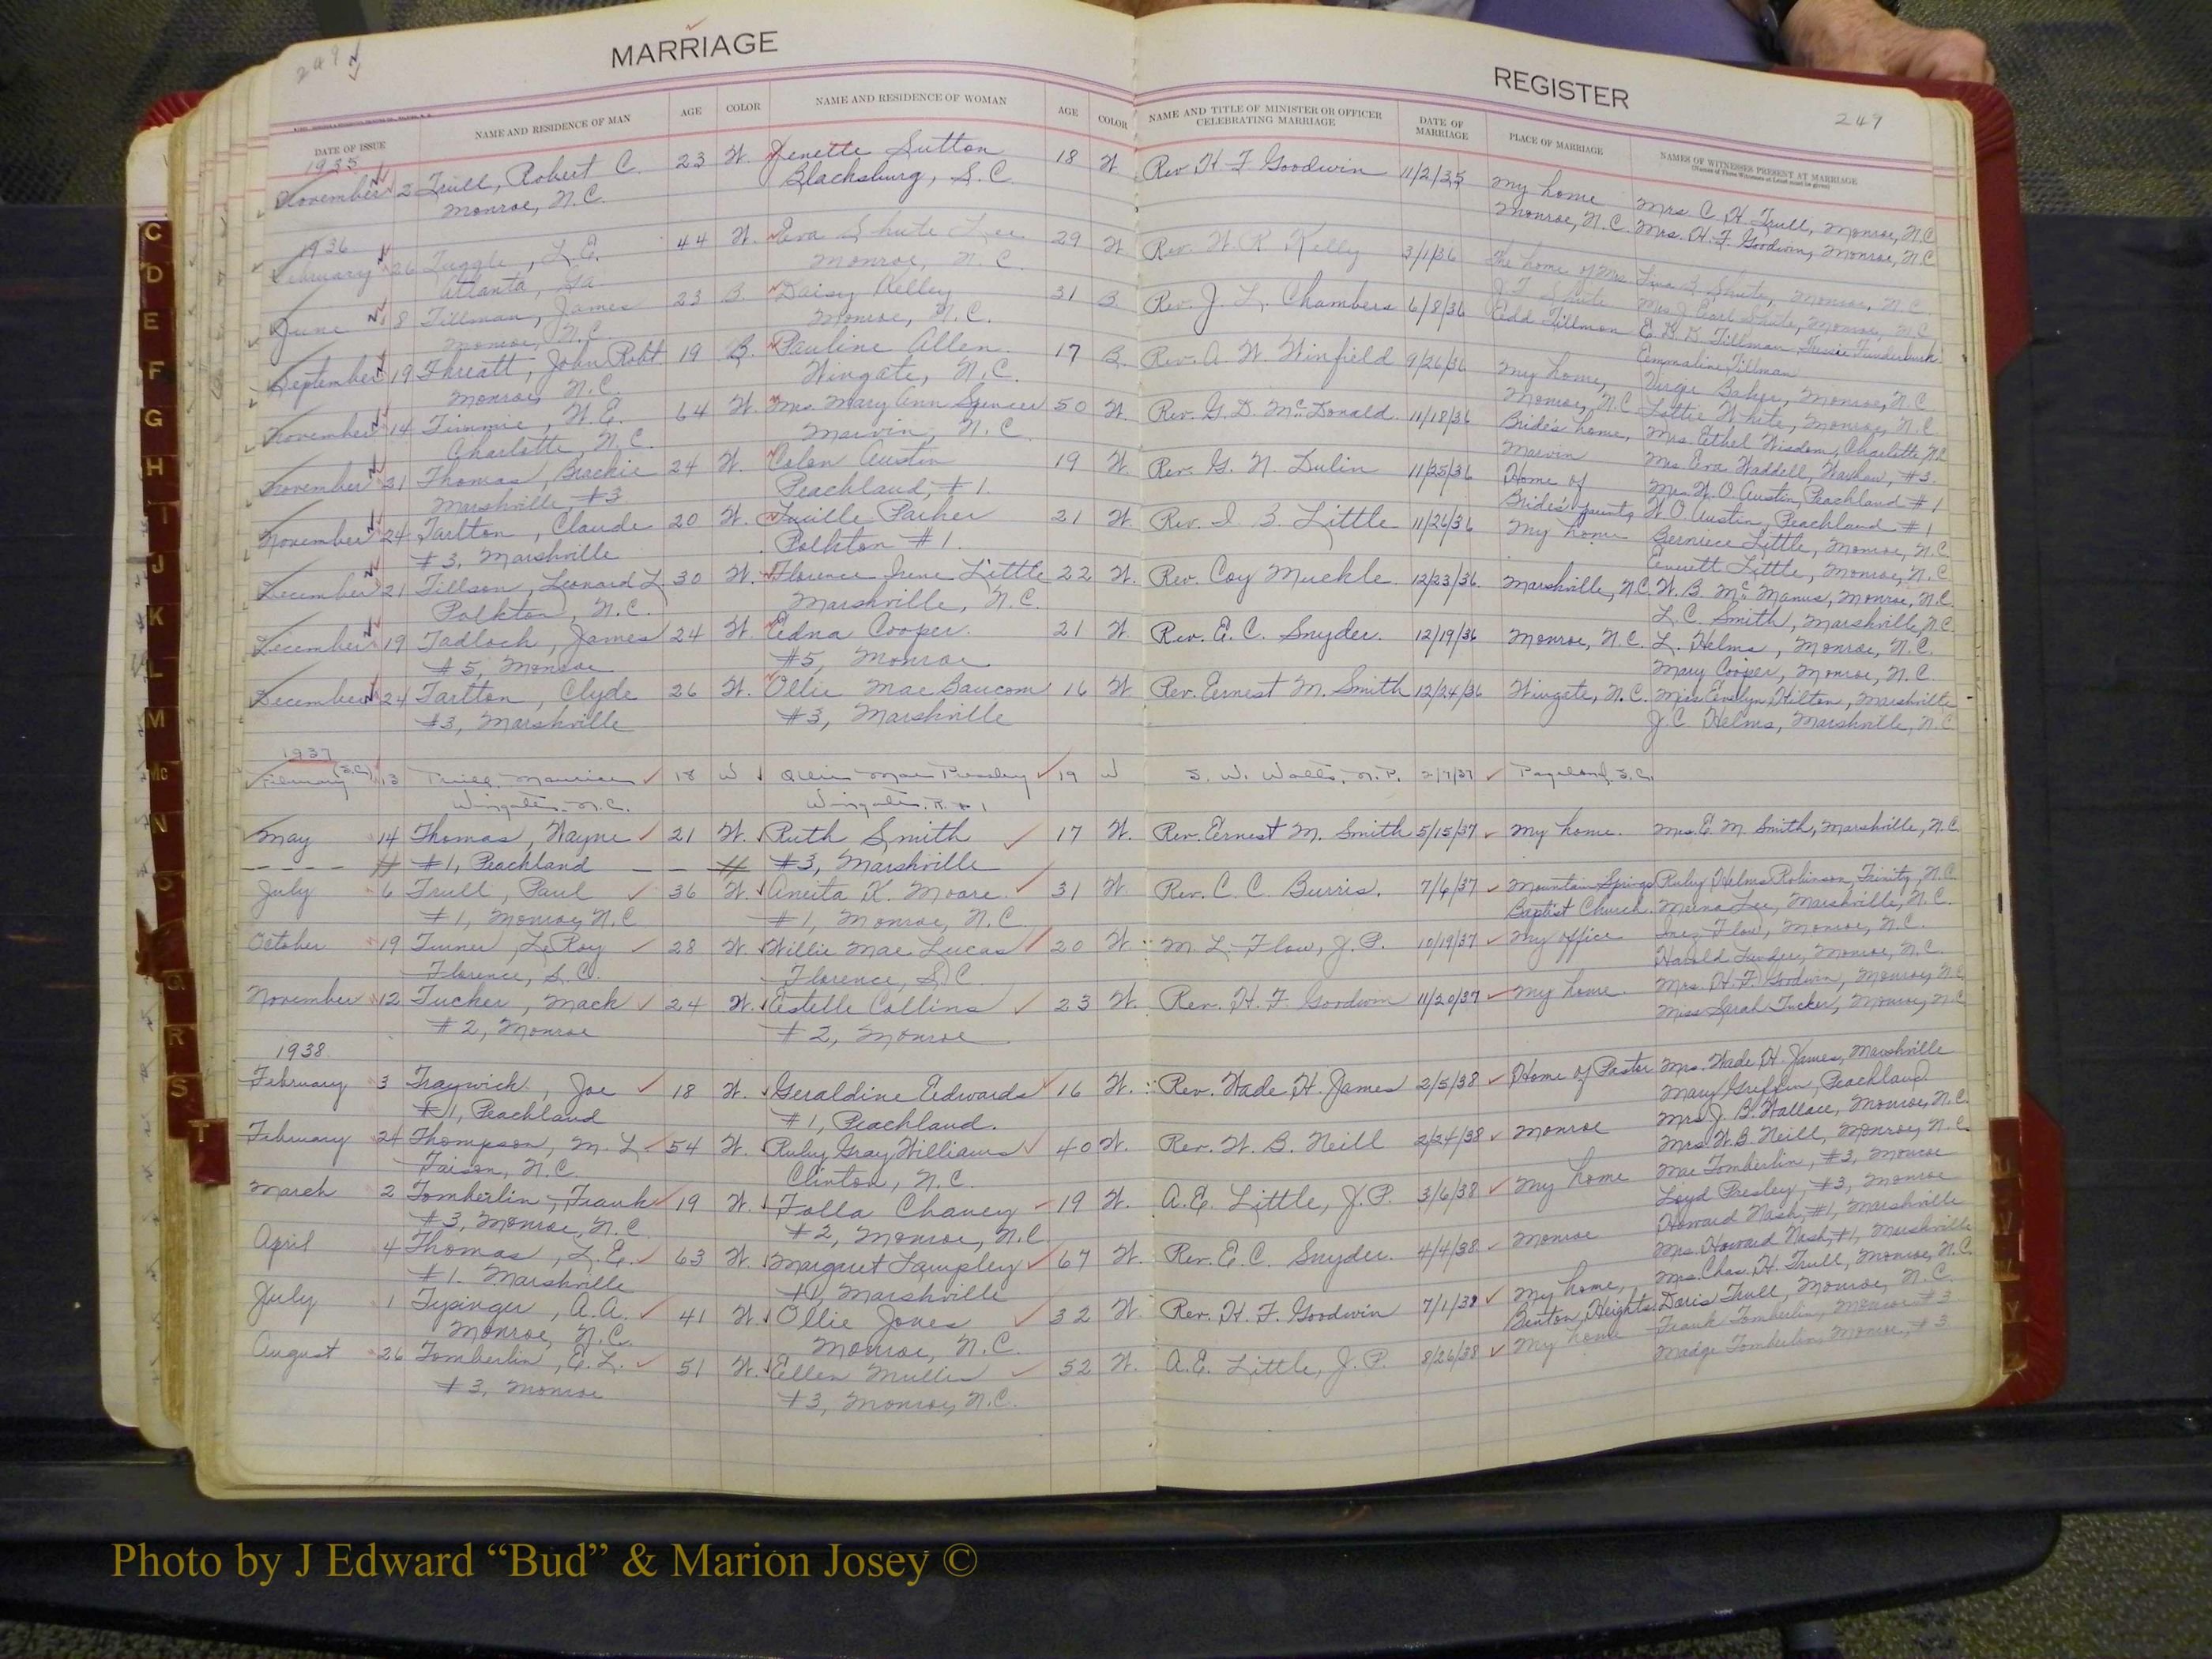 MARRIAGE
REGISTER
249
249
DATE OF ISSUE NAME AND RESIDENCE OF MAN AGE COLOR NAME AND RESIDENCE OF WOMAN AGE COLOR NAME AND TITLE OF MINISTER OR OFFICER CELEBRATING MARRIAGE DATE OF MARRIAGE PLACE OF MARRIAGE NAMES OF WITNESSES PRESENT AT MARRIAGE
(Names of Three Witnesses at Least must be given)
1935
November 2 Trull, Robert C. 23 W. Jenette Sutton 18 W Rev H F Goodwin 11/2/35 My home Mrs. C H. Trull, Monroe, N.C
Monroe, N.C. Blacksburg, S.C. Monroe, N.C. Mrs. H. F. Goodwin, Monroe, N.C
1936
February 26 Tuggle, L.E. 44 W. Eva Shute Lee 29 W Rev. W. R Kelly 3/1/36 The home of Mrs. Shute, Monroe, N.C.
Atlanta, Ga Monroe, N.C. J T Shute Mrs J Earl Shute, Monroe, N.C
June 8 Tillman, James 23 B. Daisy Kelley 31 B. Rev. J. L. Chambers 6/8/36 Edd Tillman Tillman, Funderburk
Monroe, N.C Monroe, N.C. Emmaline Tillman
September 19 Threatt, John Robt. 19 B. Pauline Allen 17 B. Rev. A W. Winfield 9/26/36 My home, Virge Baker, Monroe, N.C
Monroe, N.C. Wingate, N.C. Monroe, N.C. Lottie White, Monroe, N.C
November 14 Timmie, W.E. 64 W. Mrs. Mary Ann Spencer 50 W Rev. G. D. McDonald 11/18/36 Bride's home, Mrs. Ethel Wisdom, Charlotte, N.C
Charlotte, N.C. Marvin, N.C. Marvin Mrs Eva Waddell, Waxhaw, #3
November 21 Thomas, Brackie 24 W. Colen Austin 19 W. Rev. G. N. Dulin 11/25/36 Home of Mrs. W. O Austin, Peachland #1
Marshville #3 Peachland, #1 Bride's parents, W O Austin, Peachland #1
November 24 Tarlton, Claude 20 W. Lucille Parker 21 W Rev. I. B. Little 11/26/36 My home Berniece Little, Monroe, N.C
#3, Marshville Polkton #1. Everett Little, Monroe, N.C
December 21 Tillson, Leonard L. 30 W. Florence June Little 22 W. Rev. Coy Muckle 12/23/36 Marshville, N.C. W. B. McManus, Monroe, N.C.
Polkton, N.C. Marshville, N.C. L. C. Smith, Marshville, N.C.
December 19 Tadlock, James 24 W. Edna Cooper. 21 W. Rev. E. C. Snyder. 12/19/36 Monroe, N.C. L. Helms, Monroe, N.C.
#5, Monroe #5, Monroe Mary Cooper, Monroe, N.C.
December 24 Tarlton, Clyde 26 W. Ollie Mae Baucom 16 W Rev. Ernest M. Smith 12/24/36 Wingate, N.C. Miss Evelyn Hilton, Marshville
#3, Marshville #3, Marshville J.C Helms, Marshville, N.C
1937
February (S.C.) 13 Trull, Maurice 18 W Ollie Mae Pressley 19 W S. W. Watts, N.P. 2/7/37 Pageland, S.C.
Wingate, N.C. Wingate, R. #1
May 14 Thomas, Wayne 21 W. Ruth Smith 17 W. Rev. Ernest M. Smith 5/15/37 My home. Mrs. E. M. Smith, Marshville, N.C.
#1, Peachland #3, Marshville
July 6 Trull, Paul 36 W. Aneita K. Moore. 31 W. Rev. C. C Burris. 7/6/37 Mountain Springs Ruby Helms Robinson, Trinity, N.C.
#1, Monroe, N.C #1, Monroe, N.C Baptist Church. Merna Lee, Marshville, N.C.
October 19 Turner, LeRoy 28 W. Willie Mae Lucas 20 W. M. L. Flow, J.P. 10/19/37 My office Inez Flow, Monroe, N.C.
Florence, S.C. Florence, S.C Harold Funder, Monroe, N.C.
November 12 Tucker, Mack 24 W. Estelle Collins 23 W. Rev. H. F. Goodwin 11/20/37 My home. Mrs. H. F. Goodwin, Monroe, N.C
#2, Monroe #2, Monroe Miss Sarah Tucker, Monroe, N.C
1938.
February 3 Traywick, Joe 18 W. Geraldine Edwards 16 W. Rev. Wade H. James 2/5/38 Home of Pastor Mrs. Wade H. James, Marshville
#1, Peachland #1, Peachland. Mary Griffin, Peachland
February 24 Thompson, M. L 54 W. Ruby Gray Williams 40 W. Rev. W. B. Neill 2/24/38 Monroe Mrs J. B. Wallace, Monroe, N.C
Faison, N.C. Clinton, N.C. Mrs W. B Neill, Monroe, N.C.
March 2 Tomberlin, Frank 19 W. Folla Chaney 19 W. A.E. Little, J.P. 3/6/38 My home Mae Tomberlin, #3, Monroe
#3, Monroe, N.C. #2, Monroe, N.C. Loyd Presley, #3, Monroe
April 4 Thomas, L.E. 63 W. Margaret Lampley 67 W. Rev. E. C. Snyder. 4/4/38 Monroe Howard Nash, #1, Marshville
#1. Marshville #1, Marshville Mrs. Howard Nash, #1, Marshville
July 1 Tysinger, A.A. 41 W. Ollie Jones 32 W. Rev. H. F. Goodwin 7/1/38 My home, Mrs. Chas. H. Trull, Monroe, N.C.
Monroe, N.C. Monroe, N.C. Benton Heights. Doris Trull, Monroe, N.C.
August 26 Tomberlin, E.L. 51 W. Ellen Mullis 52 W. A.E. Little, J. P. 8/26/38 My home Frank Tomberlin, Monroe #3
#3, Monroe #3, Monroe, N.C. Madge Tomberlin, Monroe, #3
C
D
E
F
G
H
I
J
K
L
M
Mc
N
O
Q
R
S
T
Photo by J Edward “Bud” & Marion Josey ©